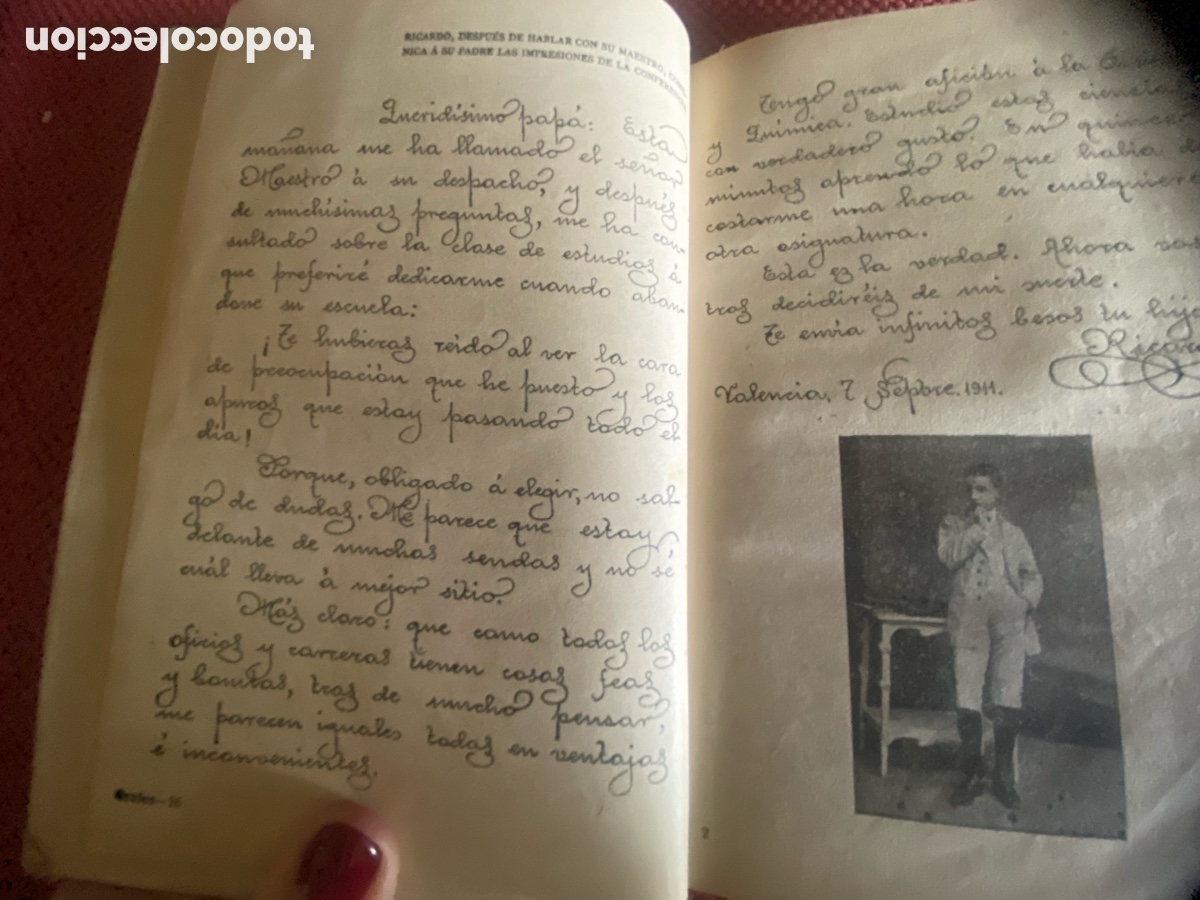 todocoleccion
RICARDO, DESPUÉS DE HABLAR CON SU MAESTRO,
NICA Á SU PADRE LAS IMPRESIONES DE LA
Queridísimo papá: Esta
mañana me ha llamado el señor
Maestro á su despacho, y después
de muchísimas preguntas, me ha con-
sultado sobre la clase de estudios á
que preferiré dedicarme cuando aban-
done su escuela:
¡Te hubieras reido al ver la cara
de preocupación que he puesto y los
apuros que estoy pasando todo el
dia!
Porque, obligado á elegir, no sal-
go de dudas. Me parece que estoy
delante de muchas sendas y no sé
cuál lleva á mejor sitio.
Más claro: que como todos los
oficios y carreras tienen cosas feas
y bonitas, tras de mucho pensar,
me parecen iguales todas en ventajas
é inconvenientes.
56
Tengo gran afición á la
y Química. Estudio estas ciencias
con verdadero gusto. En quince
minutos aprendo lo que había de
costarme una hora en cualquiera
otra asignatura.
Esta es la verdad. Ahora vos-
tros decidiréis de mi suerte.
Te envia infinitos besos tu hijo
Ricardo
Valencia, 7 Sepbre. 1911.